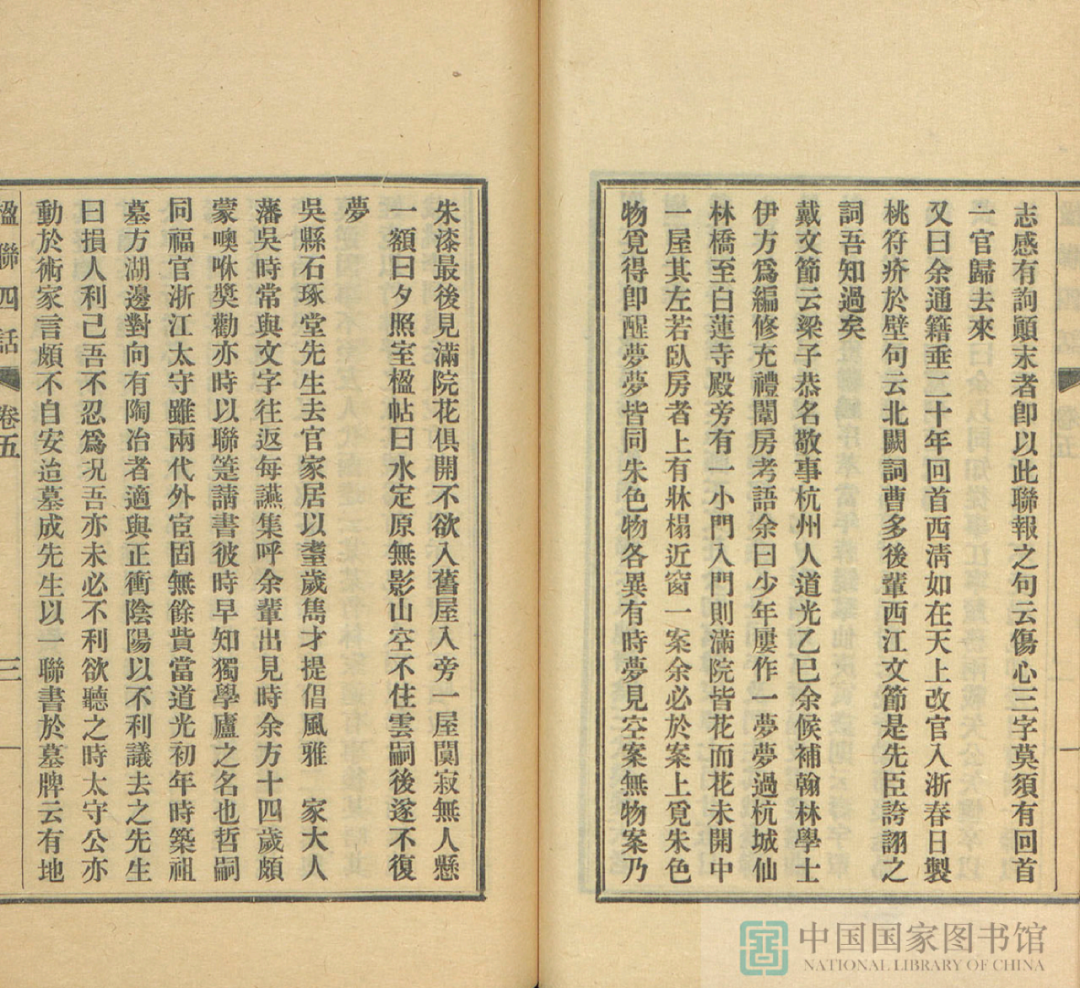 志感有詢顛末者卽以此聯報之句云傷心三字莫須有回首
一官歸去來
又曰余通籍垂二十年回首西淸如在天上改官入浙春日製
桃符疥於壁句云北闕詞曹多後輩西江文節是先臣誇詡之
詞吾知過矣
戴文節云梁子恭名敬事杭州人道光乙巳余候補翰林學士
伊方爲編修充禮闈房考語余曰少年屢作一夢夢過杭城仙
林橋至白蓮寺殿旁有一小門入門則滿院皆花而花未開中
一屋其左若臥房者上有牀榻近窗一案余必於案上覓朱色
物覓得卽醒夢夢皆同朱色物各異有時夢見空案無物案乃
朱漆最後見滿院花俱開不欲入舊屋入旁一屋闃寂無人懸
一額曰夕照室楹帖曰水定原無影山空不住雲嗣後遂不復
夢
吳縣石琢堂先生去官家居以耋歲雋才提倡風雅 家大人
藩吳時常與文字往返每讌集呼余輩出見時余方十四歲頗
蒙噢咻獎勸亦時以聯箑請書彼時早知獨學廬之名也哲嗣
同福官浙江太守雖兩代外宦固無餘貲當道光初年時築祖
墓方湖邊對向有陶冶者適與正衝陰陽以不利議去之先生
曰損人利己吾不忍爲况吾亦未必不利欲聽之時太守公亦
動於術家言頗不自安迨墓成先生以一聯書於墓牌云有地
楹聯四話 卷五 三
中国国家图书馆
NATIONAL LIBRARY OF CHINA